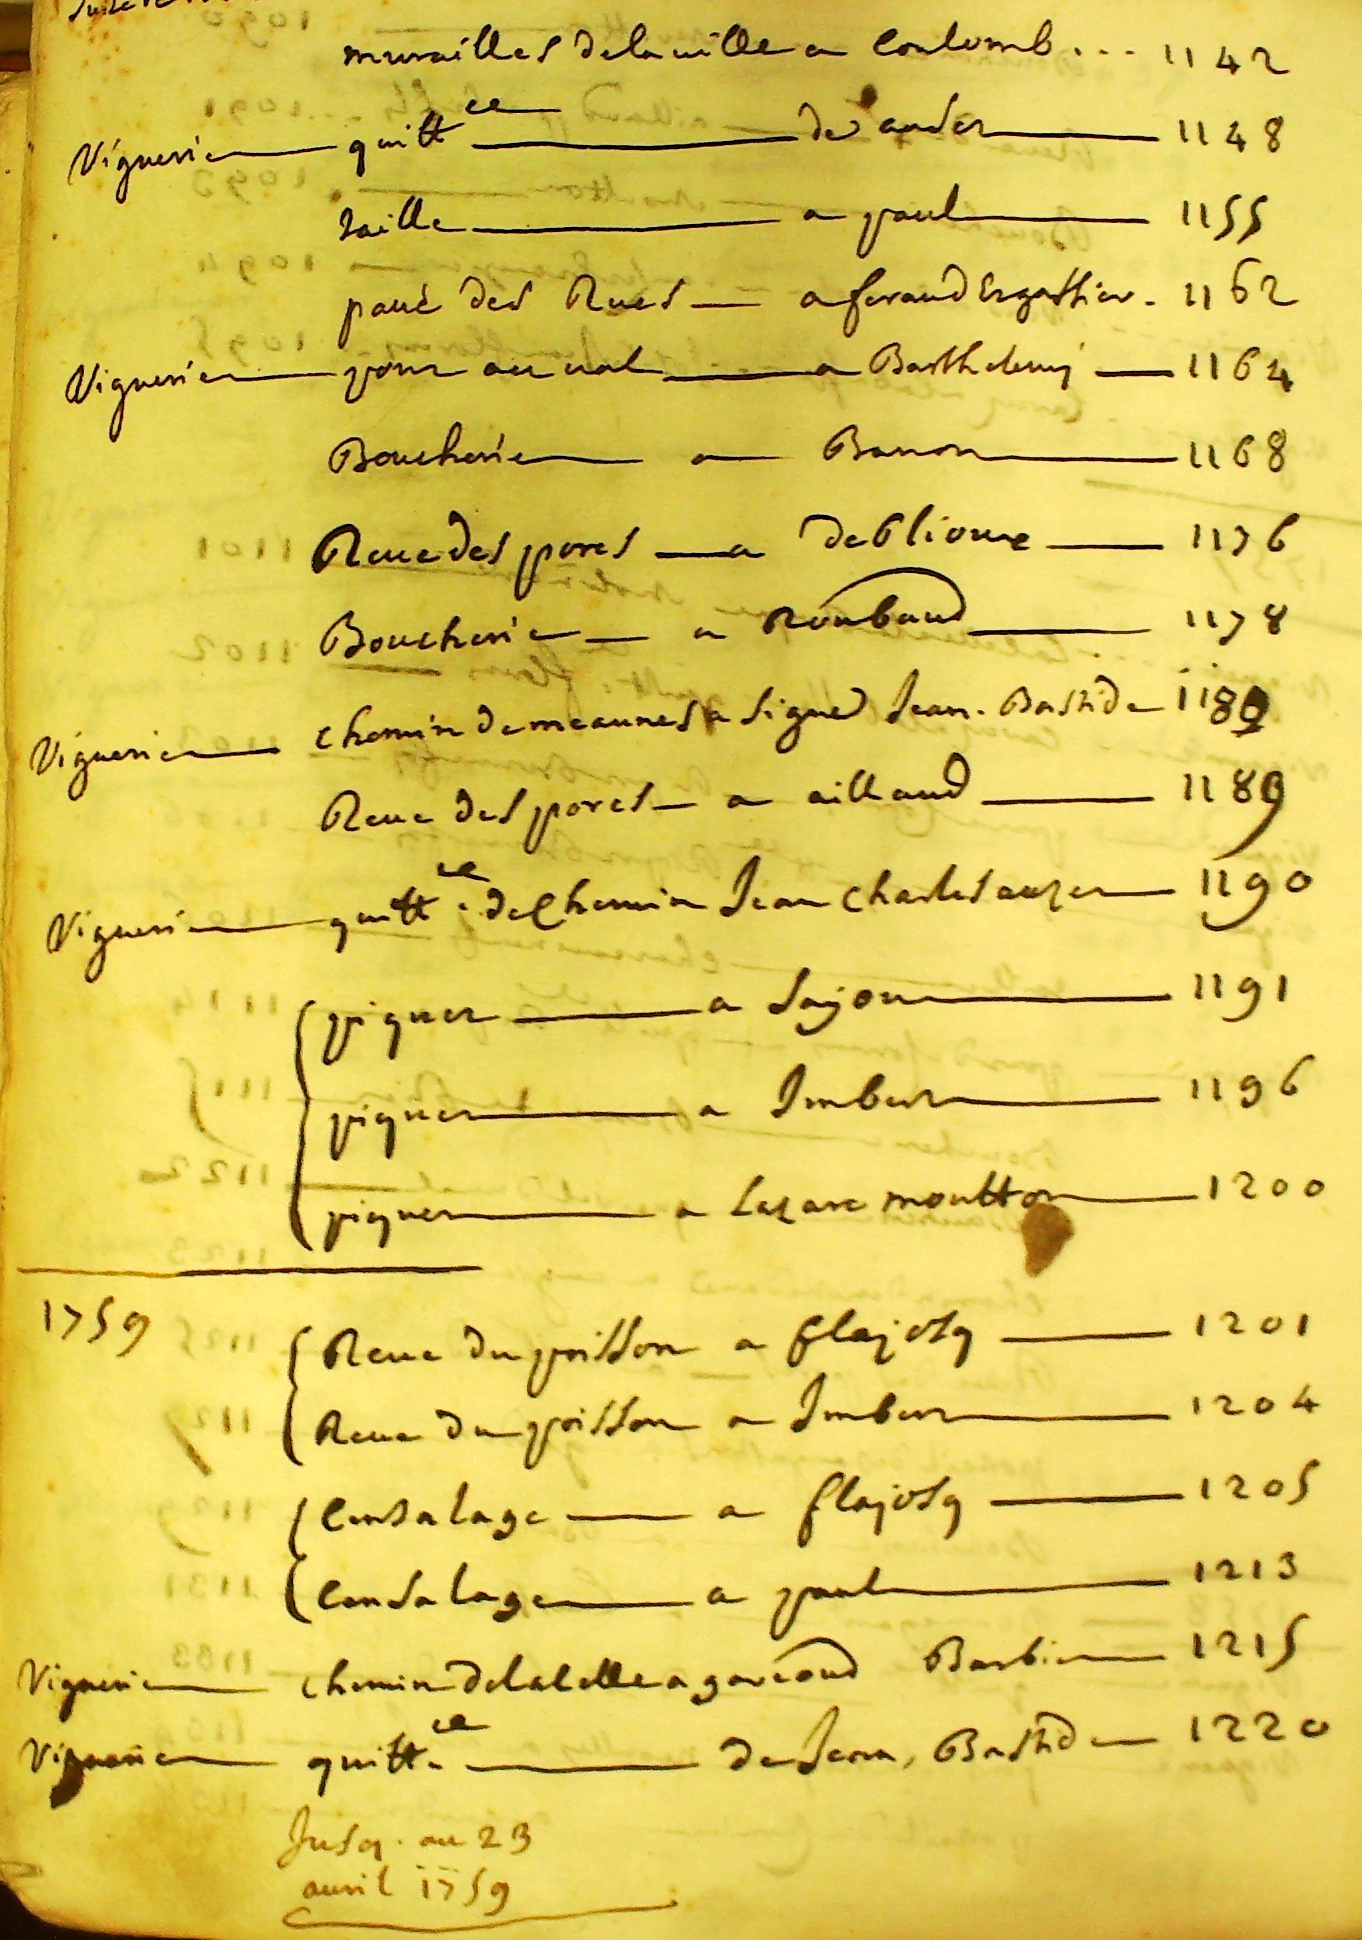 murailles de la ville a Coulomb ... 1142
Viguerie quitt ce de auder 1148
taille a paul 1155
paué des Rues a feraud 1162
Viguerie pour au ual a Barthelemy 1164
Boucherie a Barron 1168
Reue des porcs a deblioux 1176
Boucherie a Roubaud 1178
Viguerie chemin de meaunes a Signe Jean. Bastide 118
Reue des porcs a aillaud 1189
Viguerie quitt ce de Chemin Jean Charles auzer 1190
piquer a Sajou 1191
piquer a Imbert 1196
piquer a Lazare moutton 1200
1759
Reue du poisson a flajosq 1201
Reue du poisson a Imbert 1204
Censalage a flajosq 1205
Censalage a paul 1213
Viguerie chemin de la celle a garcoud Barbier 1215
Viguerie quitt. ce de Jean, Bastide 1220
Jusq. au 23
auril 1759